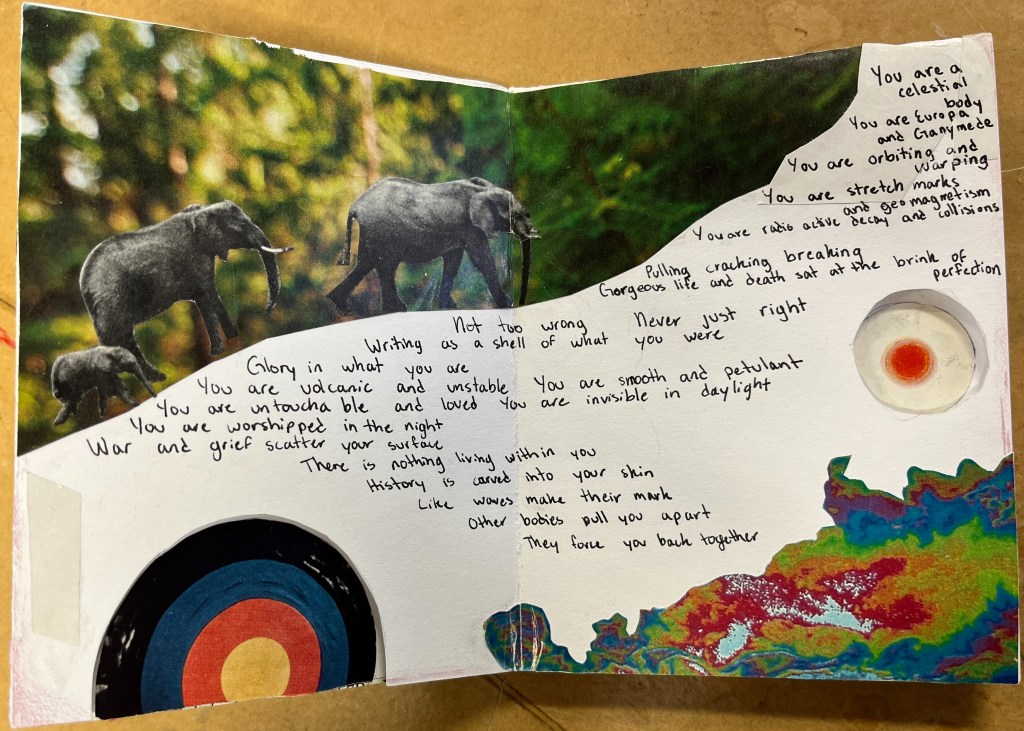 You are a
celestial
body
You are Europa
and Ganymede
You are orbiting and
warping
You are stretch marks
and geomagnetism
You are radio active decay and collisions
Pulling cracking breaking
Gorgeous life and death sat at the brink of
perfection
Not too wrong Never just right
Writing as a shell of what you were
Glory in what you are
You are volcanic and unstable You are smooth and petulant
You are untouchable and loved You are invisible in daylight
You are worshipped in the night
War and grief scatter your surface
There is nothing living within you
History is carved into your skin
Like waves make their mark
Other bodies pull you apart
They force you back together